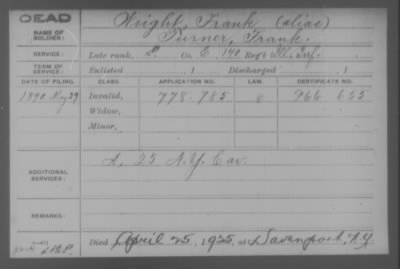 DEAD
NAME OF SOLDIER:
Wright, Frank (alias)
Turner, Frank.
SERVICE:
Late rank, P. Co. E, 140 Reg't Ill. Inf.
TERM OF SERVICE:
Enlisted , 1 Discharged , 1
DATE OF FILING. CLASS. APPLICATION NO. LAW. CERTIFICATE NO.
1890 May 29 Invalid, 778.785 8 966 655
Widow,
Minor,
ADDITIONAL SERVICES:
A. 25 N.Y. Cav.
REMARKS:
Died April 25, 1925, at Davenport, N.Y.